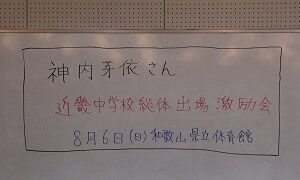 神内芽依さん
近畿中学校総体出場激励会
8月6日(日)和歌山県立体育館